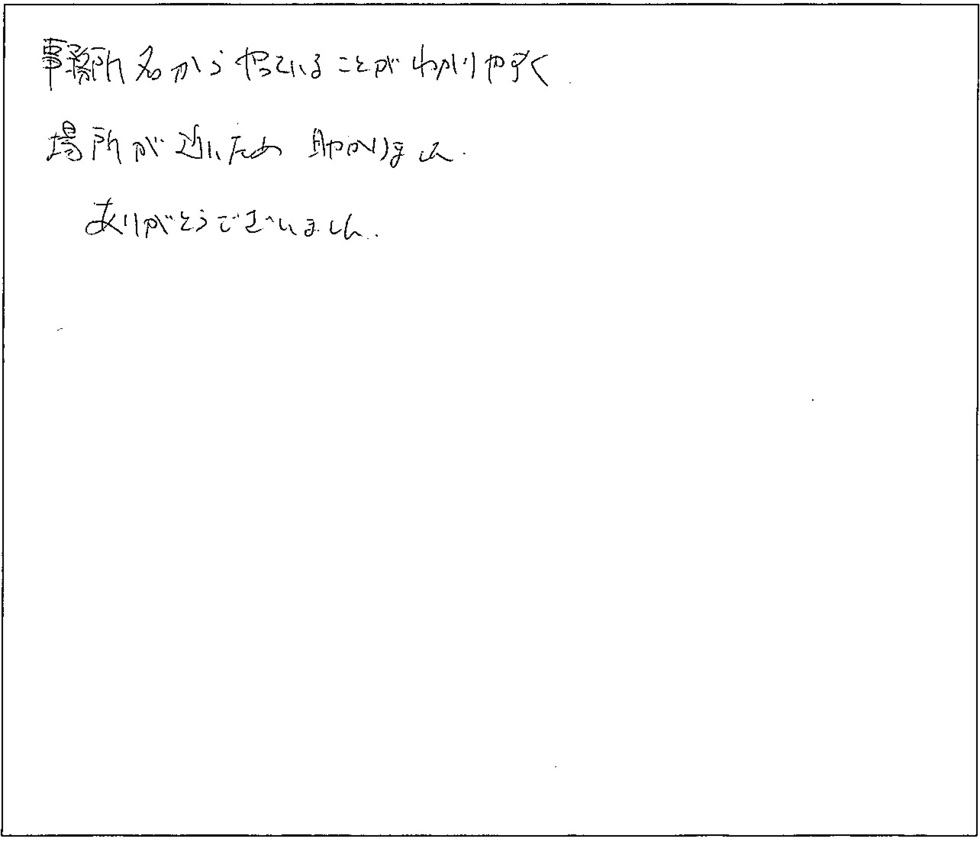 事務所名からやっていることがわかりやすく
場所が近いため 助かりました.
ありがとうございました.